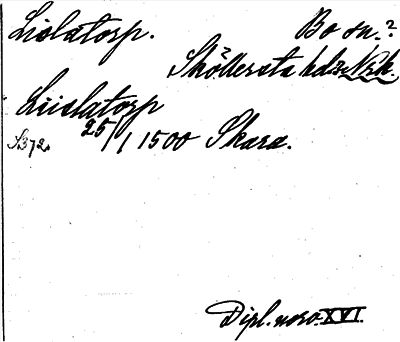 Lislatorp. Bo sn.?
Sköllersta hd. Nrk.
Liislatorp
S. 372. 25/1 1500 Skara.
Dipl. norv. XVI.